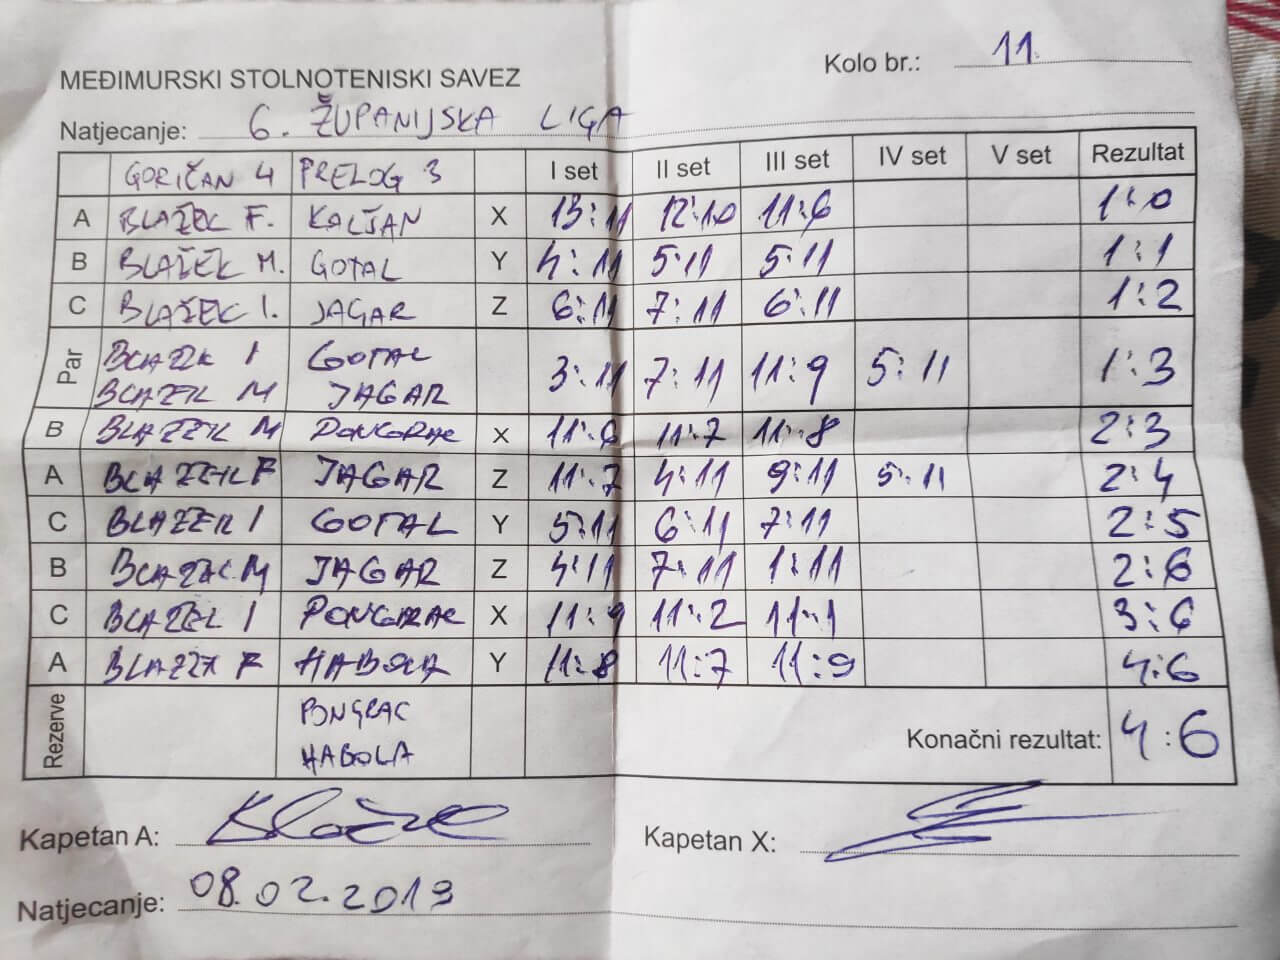 Kolo br.: 11.
MEĐIMURSKI STOLNOTENISKI SAVEZ
Natjecanje: 6. ŽUPANIJSKA LIGA
GORIČAN 4 PRELOG 3 I set II set III set IV set V set Rezultat
A BLAŽEK F. KALŠAN X 13:11 12:10 11:6 1:0
B BLAŽEK M. GOTAL Y 4:11 5:11 5:11 1:1
C BLAŽEK I. JAGAR Z 6:11 7:11 6:11 1:2
Par BLAZEK I GOTAL 3:11 7:11 11:9 5:11 1:3
BLAZEK M JAGAR
B BLAZEK M PONGRAC X 11:6 11:7 11:8 2:3
A BLAZEK F JAGAR Z 11:7 4:11 9:11 5:11 2:4
C BLAZEK I GOTAL Y 5:11 6:11 7:11 2:5
B BLAZEK M JAGAR Z 4:11 7:11 1:11 2:6
C BLAZEK I PONGRAC X 11:9 11:2 11:1 3:6
A BLAZEK F HABOLA Y 11:8 11:7 11:9 4:6
Rezerve PONGRAC Konačni rezultat: 4:6
HABOLA
Kapetan A: Blažek Kapetan X:
Natjecanje: 08.02.2019